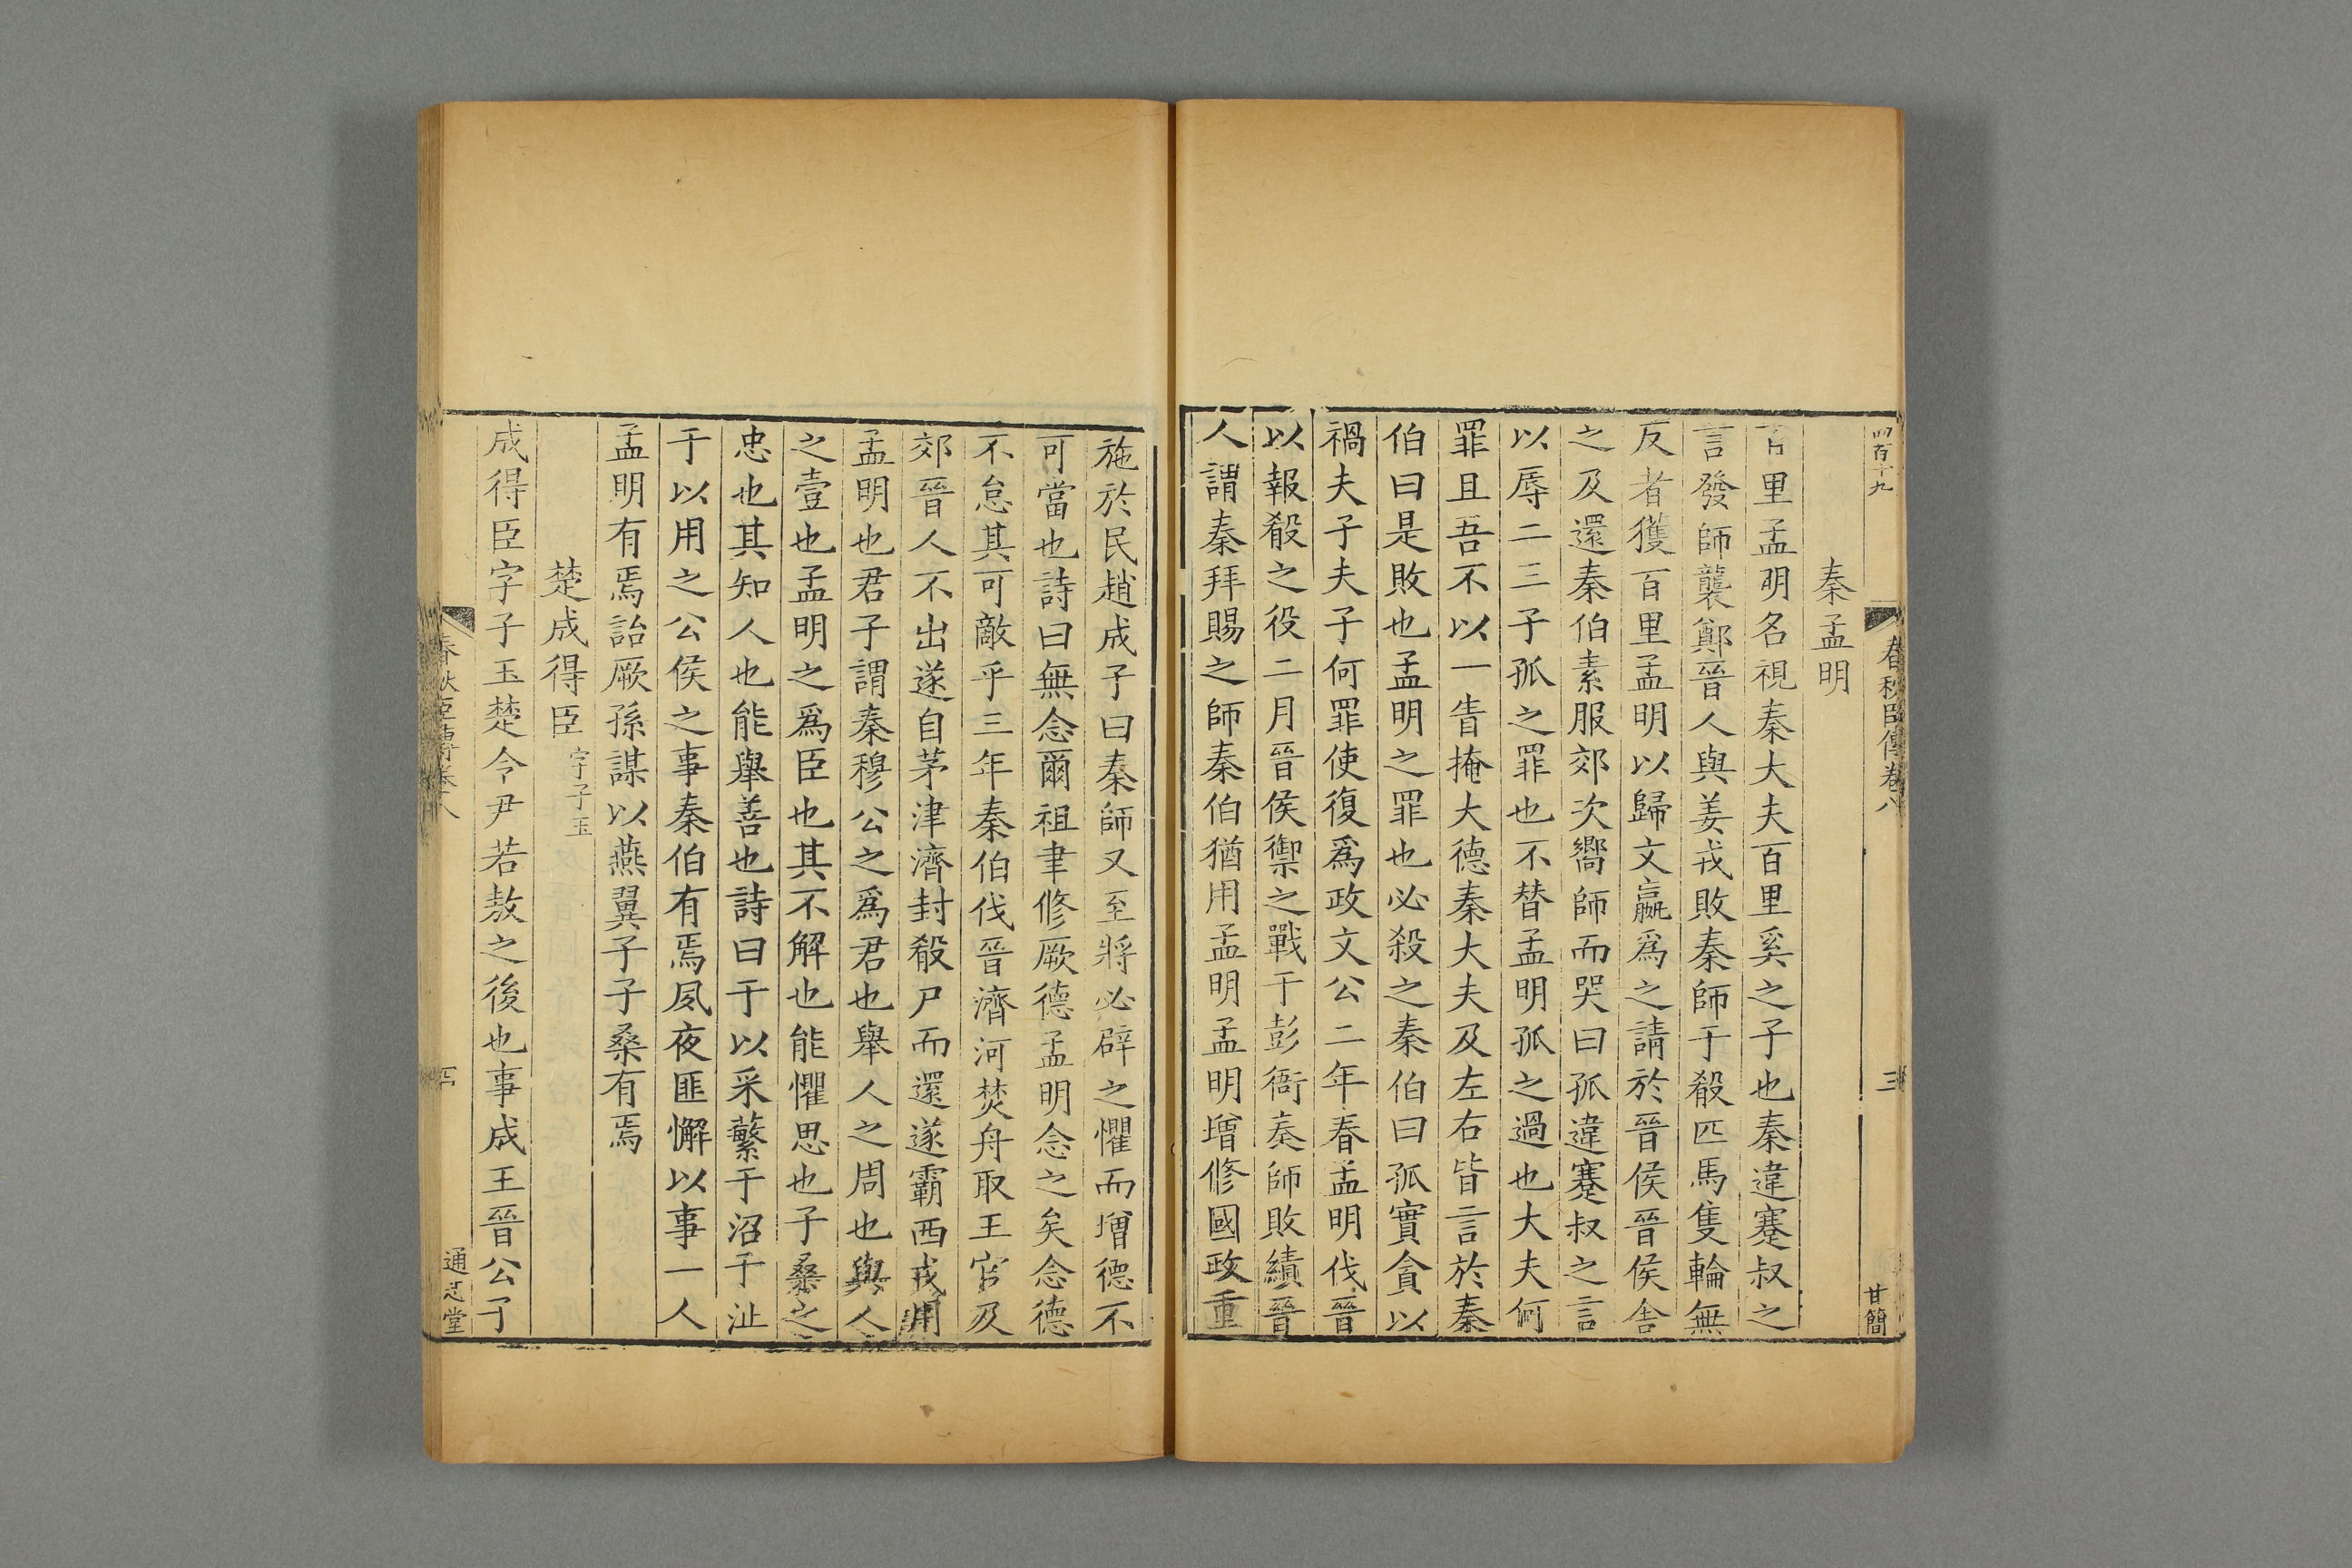 四百十九
春秋臣傳卷八
三
甘簡
秦孟明
百里孟明名視秦大夫百里奚之子也秦違蹇叔之
言發師襲鄭晉人與姜戎敗秦師于殽匹馬隻輪無
反者獲百里孟明以歸文嬴爲之請於晉侯晉侯舎
之及還秦伯素服郊次嚮師而哭曰孤違蹇叔之言
以辱二三子孤之罪也不替孟明孤之過也大夫何
罪且吾不以一眚掩大德秦大夫及左右皆言於秦
伯曰是敗也孟明之罪也必殺之秦伯曰孤實貪以
禍夫子夫子何罪使復爲政文公二年春孟明伐晉
以報殽之役二月晉侯禦之戰于彭衙秦師敗績晉
人謂秦拜賜之師秦伯猶用孟明孟明增修國政重
施於民趙成子曰秦師又至將必辟之懼而增德不
可當也詩曰無念爾祖聿修厥德孟明念之矣念德
不怠其可敵乎三年秦伯伐晉濟河焚舟取王官及
郊晉人不出遂自茅津濟封殽尸而還遂霸西戎用
孟明也君子謂秦穆公之爲君也舉人之周也與人
之壹也孟明之爲臣也其不解也能懼思也子桑之
忠也其知人也能舉善也詩曰于以采蘩于沼于沚
于以用之公侯之事秦伯有焉夙夜匪懈以事一人
孟明有焉詒厥孫謀以燕翼子子桑有焉
楚成得臣字子玉
成得臣字子玉楚令尹若敖之後也事成王晉公子
春秋臣傳卷八
四
通志堂